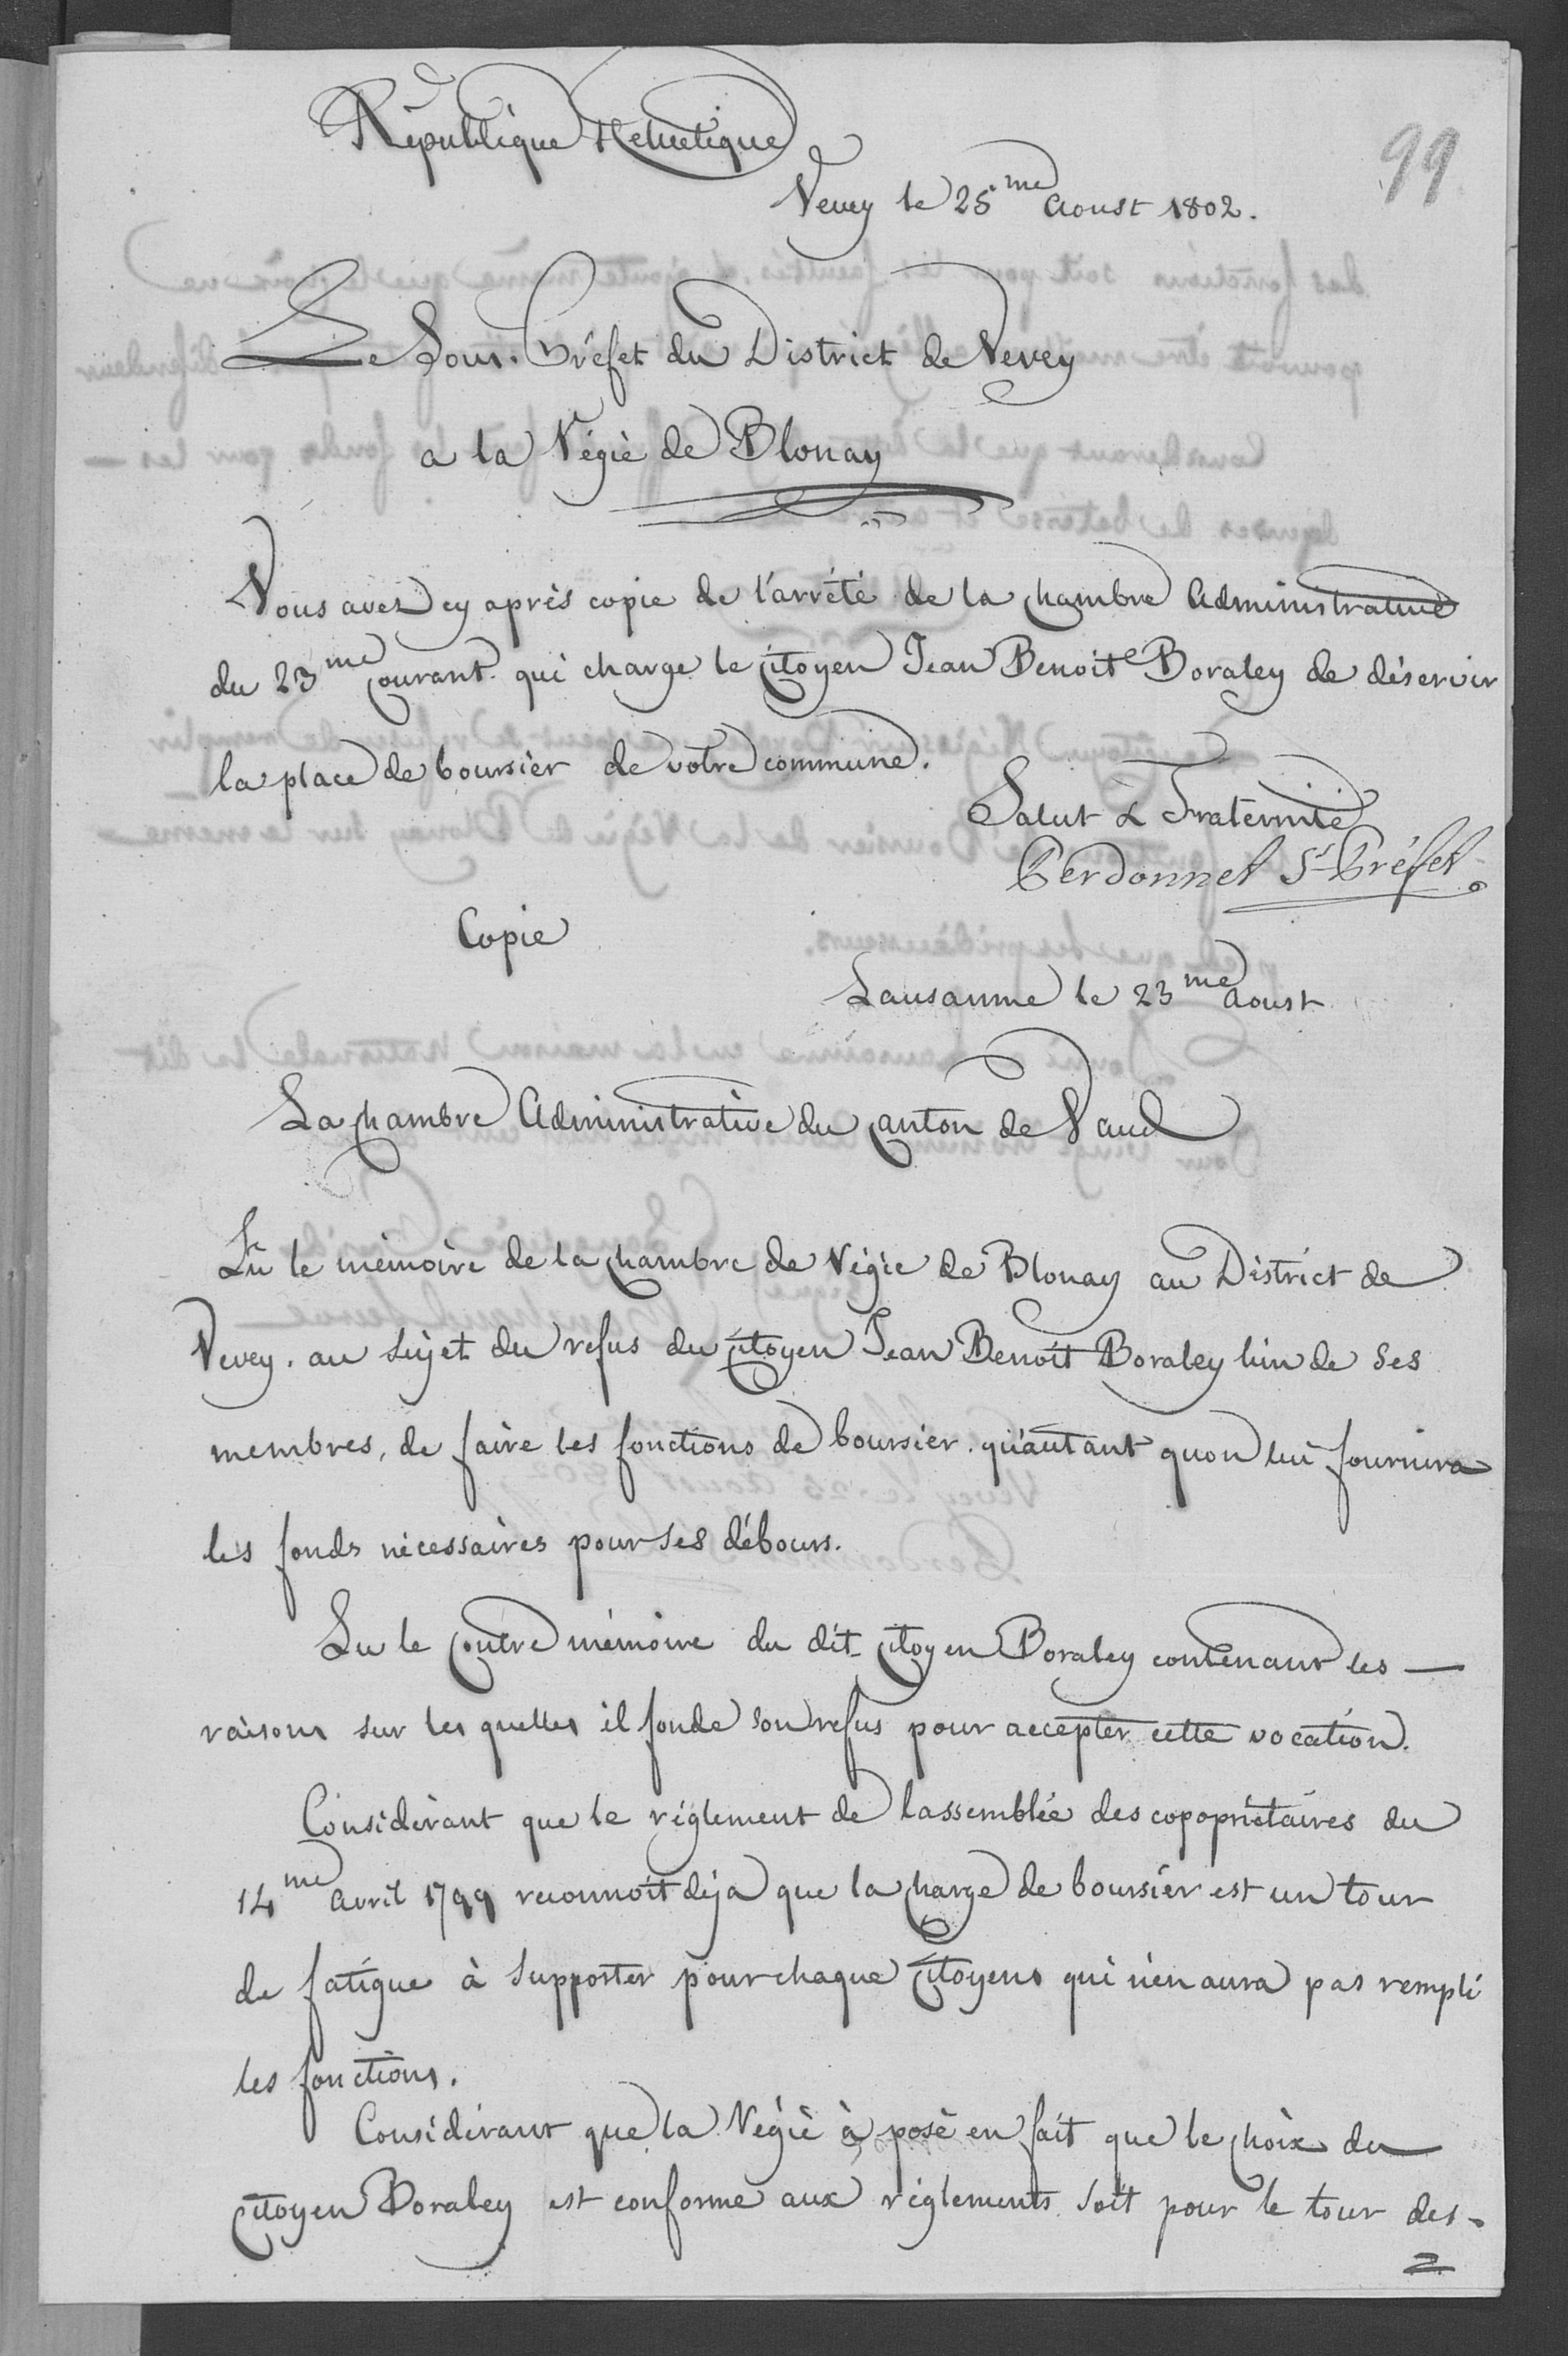 République Helvetique
99
Vevey le 25me Aoust 1802.
Le Sous. Préfet du District de Vevey
a la Régie de Blonay
Vous avez cy après copie de l'arrété de la chambre Administrative
du 23me Courant qui charge le Citoyen Jean Benoit Boraley de déservir
la place de boursier de votre commune.
Salut & Fraternité
Perdonnet St-Préfet.
Copie
Lausanne le 23me Aoust
La Chambre Administrative du Canton de Vaud
Lu le mémoire de la Chambre de Régie de Blonay au District de
Vevey. au sujet du refus du Citoyen Jean Benoit Boraley l'un de ses
membres, de faire les fonctions de boursier. qu'autant quon lui fournira
les fonds nécessaires pour ses débours.
Lu le Contre mémoire du dit Citoyen Boraley contenant les —
raisons sur les quelles il fonde son refus pour accepter cette vocation.
Considérant que le réglement de lassemblée des copopriétaires du
14me Avril 1799 reconnoit déja que la Charge de boursier est un tour
de fatigue à supporter pour chaque Citoyens qui n'en aura pas rempli
les fonctions.
Considérant que la Régie à posé en fait que le choix du
Citoyen Boraley est conforme aux réglements soit pour le tour des-